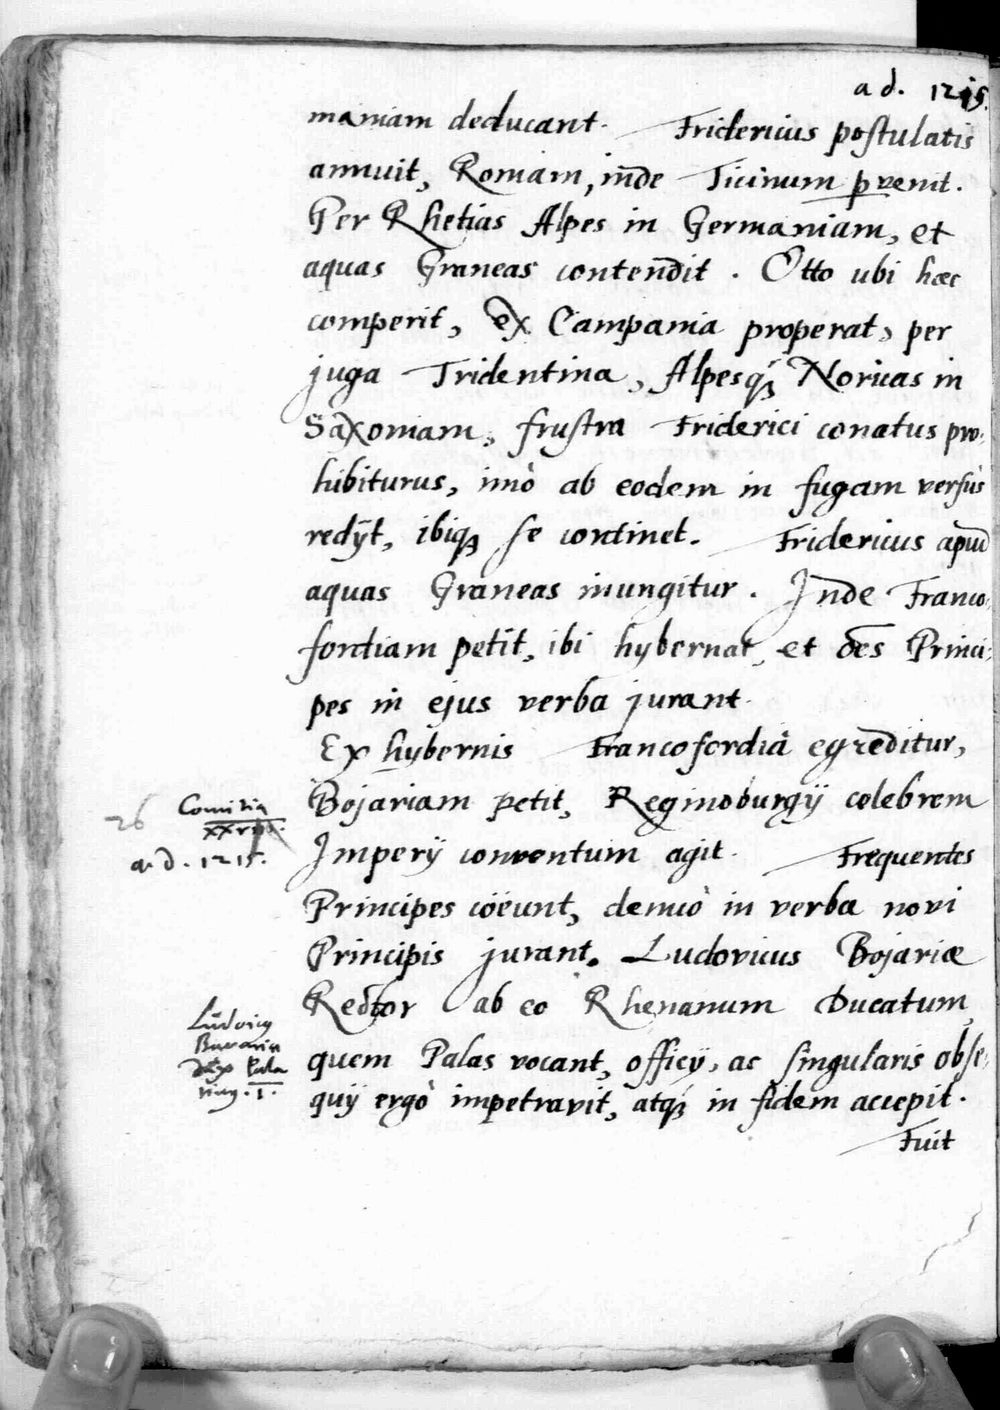 a d. 1215.
maniam deducant. Fridericus postulatis
annuit, Romam, inde Ticinum pvenit.
Per Rhetias Alpes in Germaniam, et
aquas Graneas contendit. Otto ubi hæc
comperit, ex Campania properat, per
juga Tridentina, Alpesq; Noricas in
Saxoniam, frustra Friderici conatus pro-
hibiturus, imò ab eodem in fugam versus
redÿt, ibiq; se continet. Fridericus apud
aquas Graneas inungitur. Inde Franco-
fordiam petit, ibi hybernat, et oēs Princi-
pes in ejus verba jurant.
Ex hybernis Francofordiâ egreditur,
Bojariam petit, Reginoburgÿ celebrem
Imperÿ conventum agit. Frequentes
Principes cöeunt, denuò in verba novi
Principis jurant. Ludovicus Bojariæ
Rector ab eo Rhenanum Ducatum,
quem Palas vocant, officÿ, ac singularis obse-
quÿ ergò impetravit, atq; in fidem accepit.
Fuit
26 Comitia
a. d. 1215.
Ludovicus
Bavariæ
Dux Pala
tinus. 1.